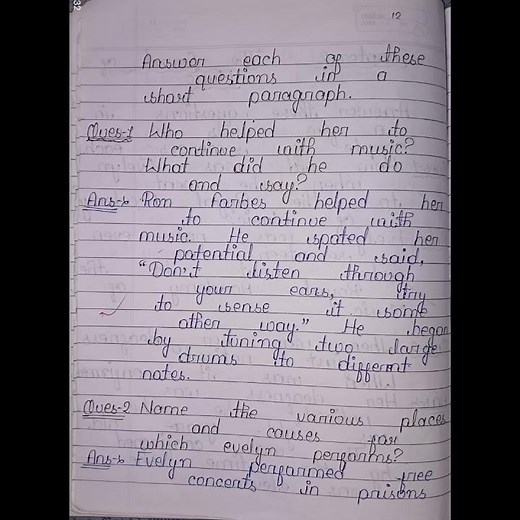 32
12
Answer each of these
questions in a
short paragraph.
Ques-1 Who helped her to
continue with music?
What did he do
and say?
Ans-> Ron Forbes helped her
to continue with
music. He spoted her
potential and said,
"Don't listen through
your ears, try
to sense it some
other way." He began
by tuning two large
drums to different
notes.
Ques-2 Name the various places
and causes for
which evelyn performs?
Ans-> Evelyn performed free
concerts in prisons